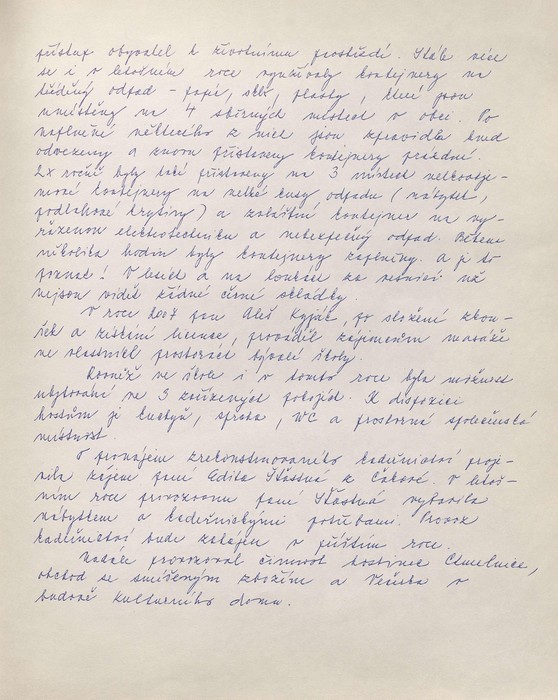 přístup obyvatel k životnímu prostředí. Stále více
se i v letošním roce využívaly kontejnery na
tříděný odpad - papír, sklo, plasty, které jsou
umístěny na 4 sběrných místech v obci. Po
naplnění některého z nich jsou zpravidla hned
odvezeny a znovu přistaveny kontejnery prázdné.
2x ročně byly také přistaveny na 3 místech velkoobje-
mové kontejnery na velké kusy odpadu (nábytek,
podlahové krytiny) a zvláštní kontejner na vy-
řazenou elektrotechniku a nebezpečný odpad. Během
několika hodin byly kontejnery zaplněny. A je to
poznat! V lesích a na loukách za vesnicí už
nejsou vidět žádné černé skládky.
V roce 2007 pan Aleš Kyják, po složení zkou-
šek a získání licence, prováděl zájemcům masáže
ve vlastních prostorách bývalé školy.
Rovněž ve škole i v tomto roce byla možnost
ubytování ve 3 zařízených pokojích. K dispozici
hostům je kuchyň, sprcha, WC a prostorná společenská
místnost.
O pronájem zrekonstruovaného kadeřnictví proje-
vila zájem paní Edita Šťastná z Čakové. V letoš-
ním roce provozovnu paní Šťastná vybavila
nábytkem a kadeřnickými potřebami. Provoz
kadeřnictví bude zahájen v příštím roce.
Nadále provozoval činnost hostinec Chmelnice,
obchod se smíšeným zbožím a Večerka v
budově kulturního domu.